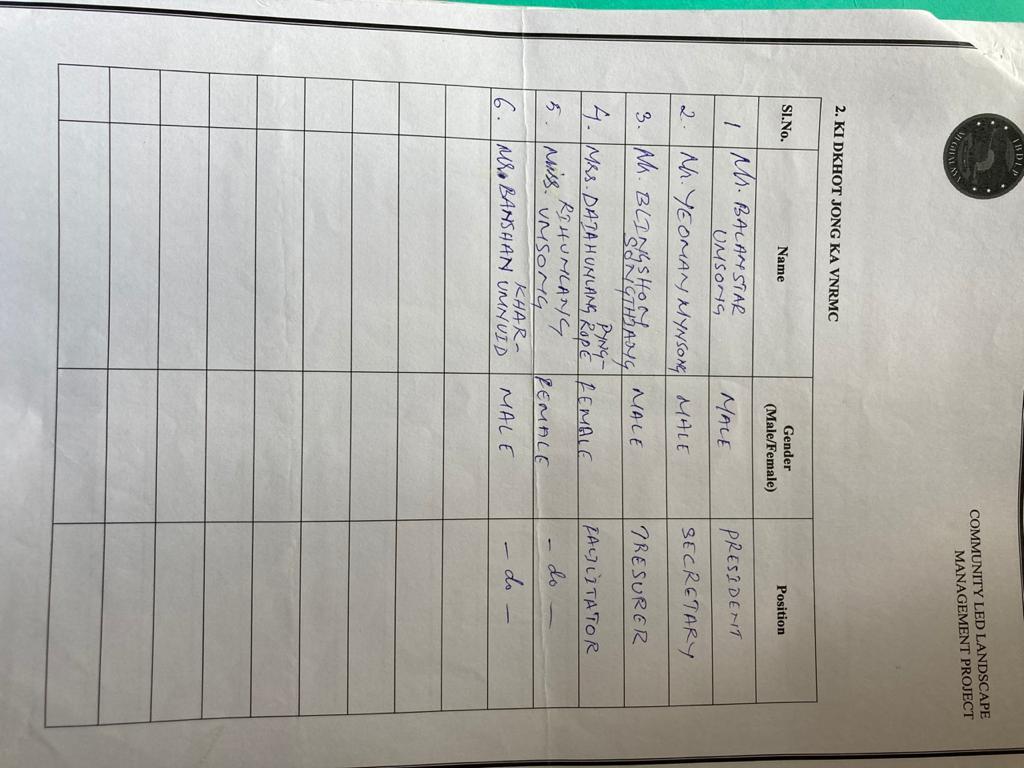 COMMUNITY LED LANDSCAPE
MANAGEMENT PROJECT
2. KI DKHOT JONG KA VNRMC
Sl.No. Name Gender (Male/Female) Position
1 Mr. BALAMSTAR UMSONG MALE PRESIDENT
2. Mr. YEOMAN MYNSONG MALE SECRETARY
3. Mr. BLINGSHON SONGTHIANG MALE TRESURER
4. Mrs. DAIAHUNLANG PYNG-ROPE FEMALE
5. Miss. RIHUNLANG UMSONG FEMALE - do -
6. Mr. BANSHAN KHAR-UMNUID MALE - do -